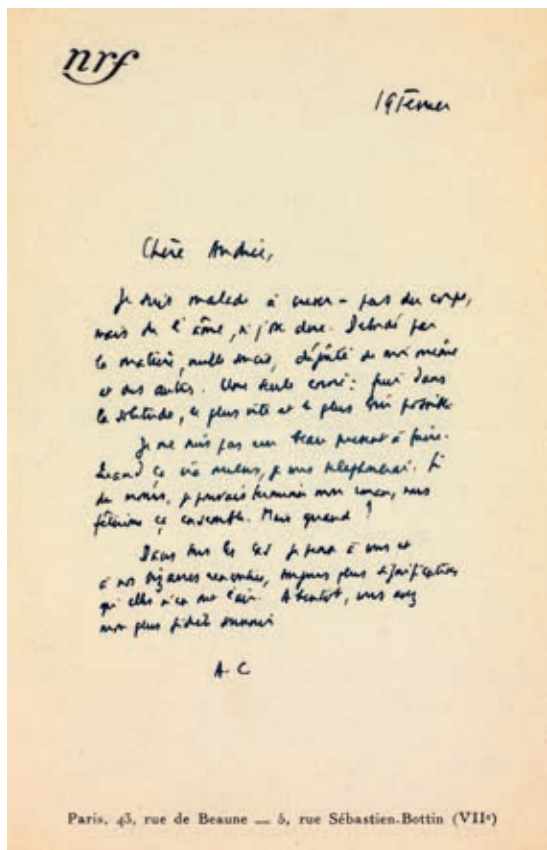 nrf
19 février
Chère Andrée,
Je suis malade à crever – pas du corps,
mais de l'âme, si j'ose dire. Débordé par
la matière, mille soucis, dégoûté de moi même
et des autres. Une seule envie: fuir dans
la solitude, le plus vite et le plus loin possible
Je ne suis pas un beau présent à faire.
Quand ça ira mieux, je vous téléphonerai. Si
du moins, je pouvais terminer mon roman, nous
fêterions ça ensemble. Mais quand ?
Dans tous les cas je pense à vous et
à nos bizarres rencontres, toujours plus significatives
qu'elles n'en ont l'air. A bientôt, vous avez
mon plus fidèle souvenir
A. C
Paris, 43, rue de Beaune — 5, rue Sébastien-Bottin (VIIe)